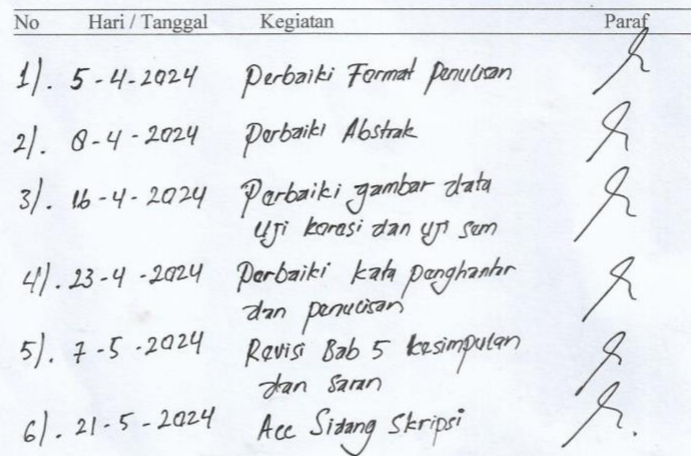 No Hari / Tanggal Kegiatan Paraf
1). 5-4-2024 Perbaiki Format Penulisan
2). 8-4-2024 Perbaiki Abstrak
3). 16-4-2024 Perbaiki gambar data
Uji korosi dan uji sem
4). 23-4-2024 Perbaiki kata penghantar
dan penulisan
5). 7-5-2024 Revisi Bab 5 kesimpulan
dan Saran
6). 21-5-2024 Acc Sidang Skripsi